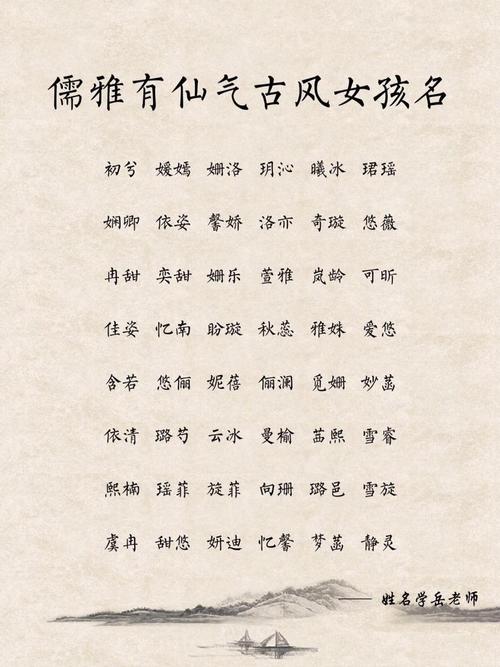 儒雅有仙气古风女孩名
初兮 媛嫣 姗洛 玥沁 曦冰 珺瑶
娴卿 依姿 馨娇 洛亦 奇璇 悠薇
冉甜 奕甜 姗乐 萱雅 岚龄 可昕
佳姿 忆南 盼璇 秋蕊 雅姝 爱悠
含若 悠俪 妮蓓 俪澜 觅姗 妙菡
依清 璐芍 云冰 曼榆 茜熙 雪睿
熙楠 瑶菲 旋菲 向珊 璐邑 雪旋
虞冉 甜悠 妍迪 忆馨 梦菡 静灵
——姓名学岳老师